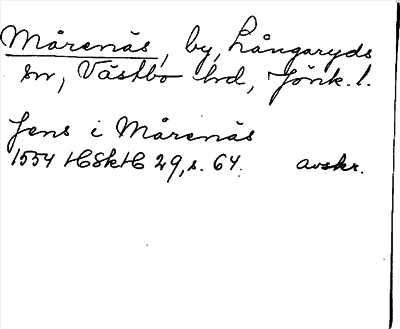 Mårenäs, by, Långaryds
sn, Västbo hd, Jönk. l.
Jens i Mårenäs
1554 HSkH 29, s. 64. avskr.